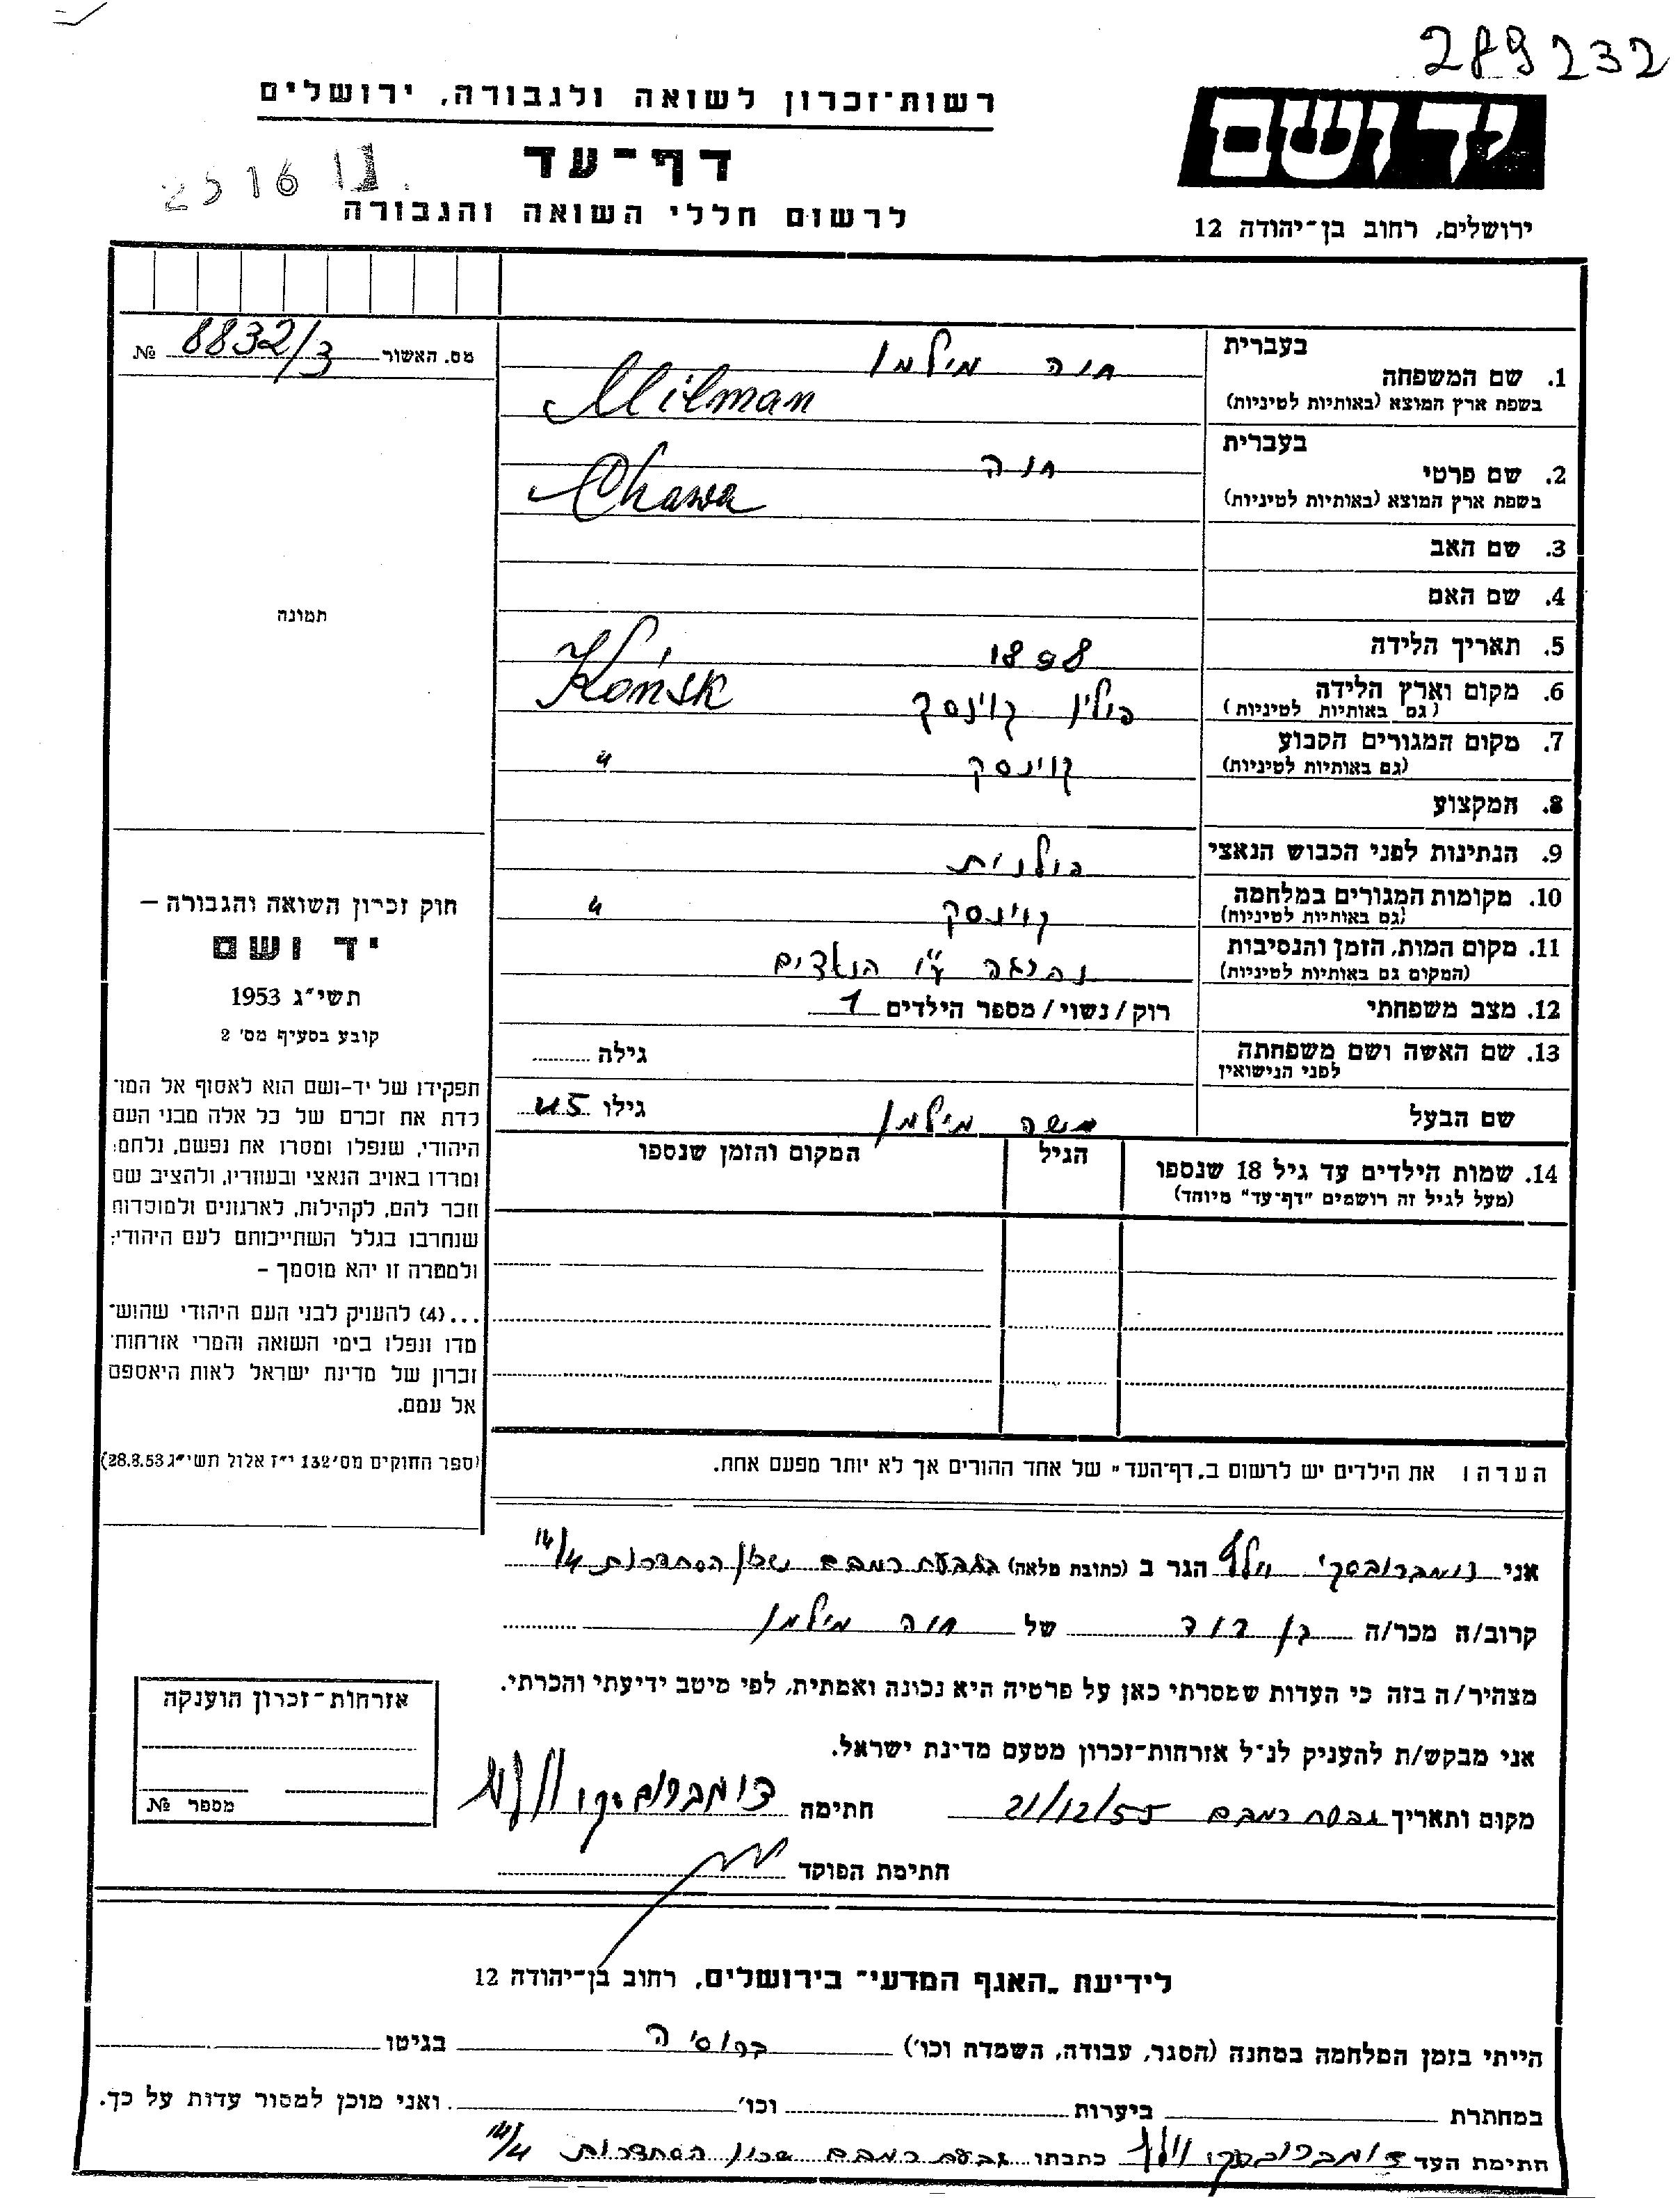 289232
רשות־זכרון לשואה ולגבורה, ירושלים
יד ושם
דף־עד
2516
לרשום חללי השואה והגבורה
ירושלים, רחוב בן־יהודה 12
מס. האשור 8832/3 №
תמונה
חוק זכרון השואה והגבורה –
יד ושם
תשי״ג 1953
קובע בסעיף מס' 2
תפקידו של יד-ושם הוא לאסוף אל המו־
לדת את זכרם של כל אלה מבני העם
היהודי, שנפלו ומסרו את נפשם, נלחמו
ומרדו באויב הנאצי ובעוזריו, ולהציב שם
וזכר להם, לקהילות, לארגונים ולמוסדות
שנחרבו בגלל השתייכותם לעם היהודי;
ולמטרה זו יהא מוסמך –
...(4) להעניק לבני העם היהודי שהוש־
מדו ונפלו בימי השואה והמרי אזרחות־
זכרון של מדינת ישראל לאות היאספם
אל עמם.
(ספר החוקים מס' 132 י״ז אלול תשי״ג 28.8.53)
בעברית חוה מילמן
1. שם המשפחה
בשפת ארץ המוצא (באותיות לטיניות) Milman
בעברית חוה
2. שם פרטי
בשפת ארץ המוצא (באותיות לטיניות) Chawa
3. שם האב
4. שם האם
5. תאריך הלידה 1898
6. מקום וארץ הלידה פולין קוינסק Końsk
(גם באותיות לטיניות)
7. מקום המגורים הקבוע קוינסק "
(גם באותיות לטיניות)
8. המקצוע
9. הנתינות לפני הכבוש הנאצי פולנית
10. מקומות המגורים במלחמה קוינסק "
(גם באותיות לטיניות)
11. מקום המות, הזמן והנסיבות נהרגה ע"י הנאצים
(המקום גם באותיות לטיניות)
12. מצב משפחתי רוק/נשוי/מספר הילדים 1
13. שם האשה ושם משפחתה גילה
לפני הנישואין
שם הבעל משה מילמן גילו 45
14. שמות הילדים עד גיל 18 שנספו הגיל המקום והזמן שנספו
(מעל לגיל זה רושמים "דף־עד" מיוחד)
הערה: את הילדים יש לרשום ב„דף־העד" של אחד ההורים אך לא יותר מפעם אחת.
אני דומברובסקי וולף הגר ב (כתובת מלאה) גבעת רמבם שכון הסתדרות 14/4
קרוב/ה מכר/ה בן דוד של חוה מילמן
מצהיר/ה בזה כי העדות שמסרתי כאן על פרטיה היא נכונה ואמתית, לפי מיטב ידיעתי והכרתי.
אני מבקש/ת להעניק לנ״ל אזרחות־זכרון מטעם מדינת ישראל.
מקום ותאריך גבעת רמבם 21/12/55 חתימה דומברובסקי וולף
חתימת הפוקד
אזרחות־זכרון הוענקה
מספר №
לידיעת „האגף המדעי" בירושלים, רחוב בן־יהודה 12
הייתי בזמן המלחמה במחנה (הסגר, עבודה, השמדה וכו') ברוסיה בגיטו
במחתרת ביערות וכו' ואני מוכן למסור עדות על כך.
חתימת העד דומברובסקי וולף כתבתו גבעת רמבם שכון הסתדרות 14/4